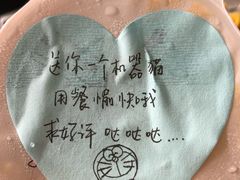 送你一个机器猫
用餐愉快哦
求好评 哒哒哒....